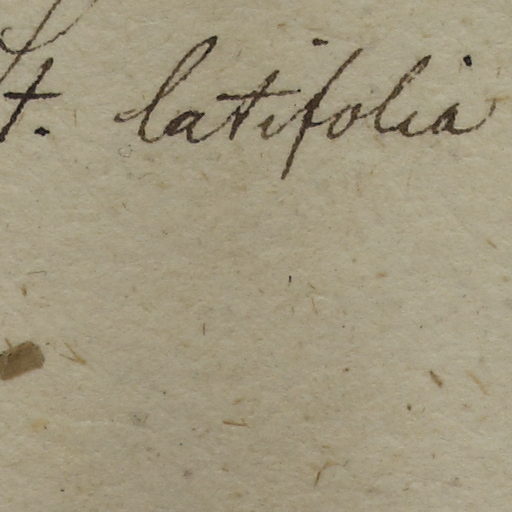 t. latifolia